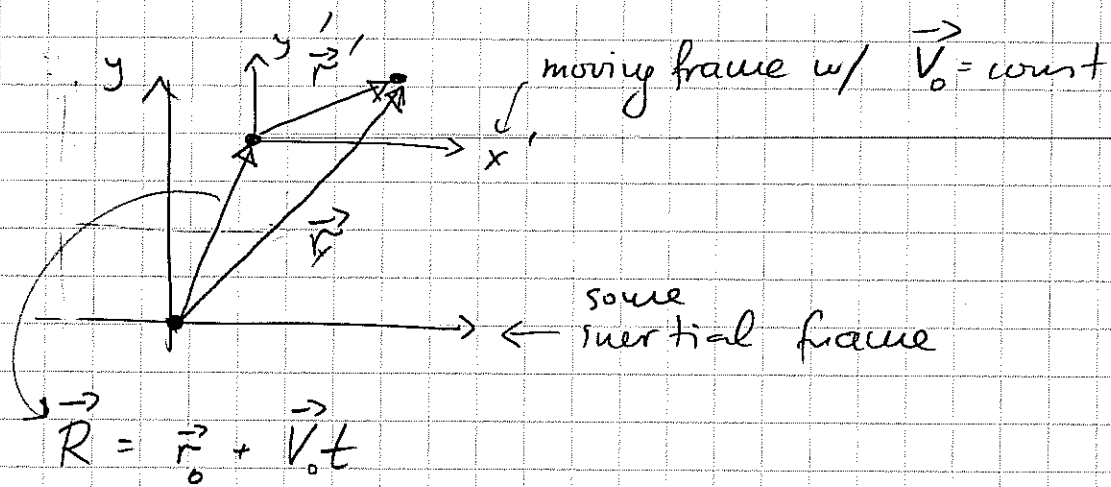 y
y'
r⃗'
moving frame w/ V⃗₀ = const
x'
r⃗
some
inertial frame
R⃗ = r⃗₀ + V⃗₀t